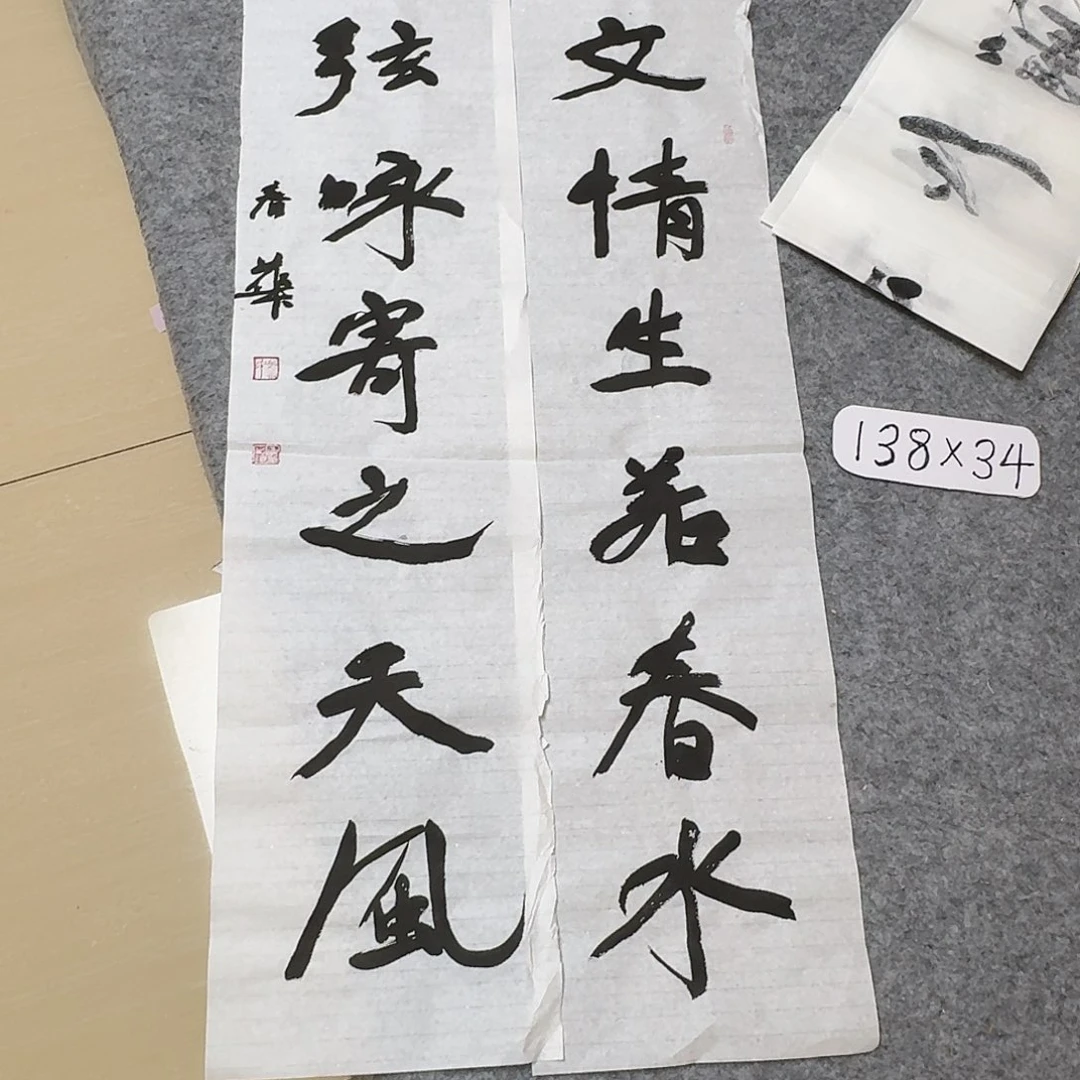 文情生若春水
弦咏寄之天风
春华
138×34